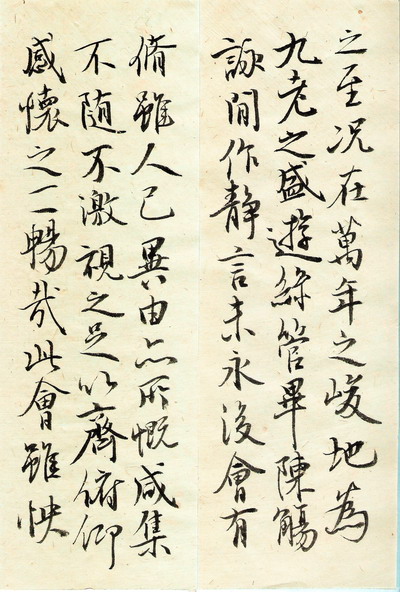 之至况在萬年之峻地為
九老之盛遊絲管畢陳觴
詠間作静言未永後會有
脩雖人已異由亦所慨咸集
不随不激視之足以齊俯仰
感懷之一暢哉此會雖快